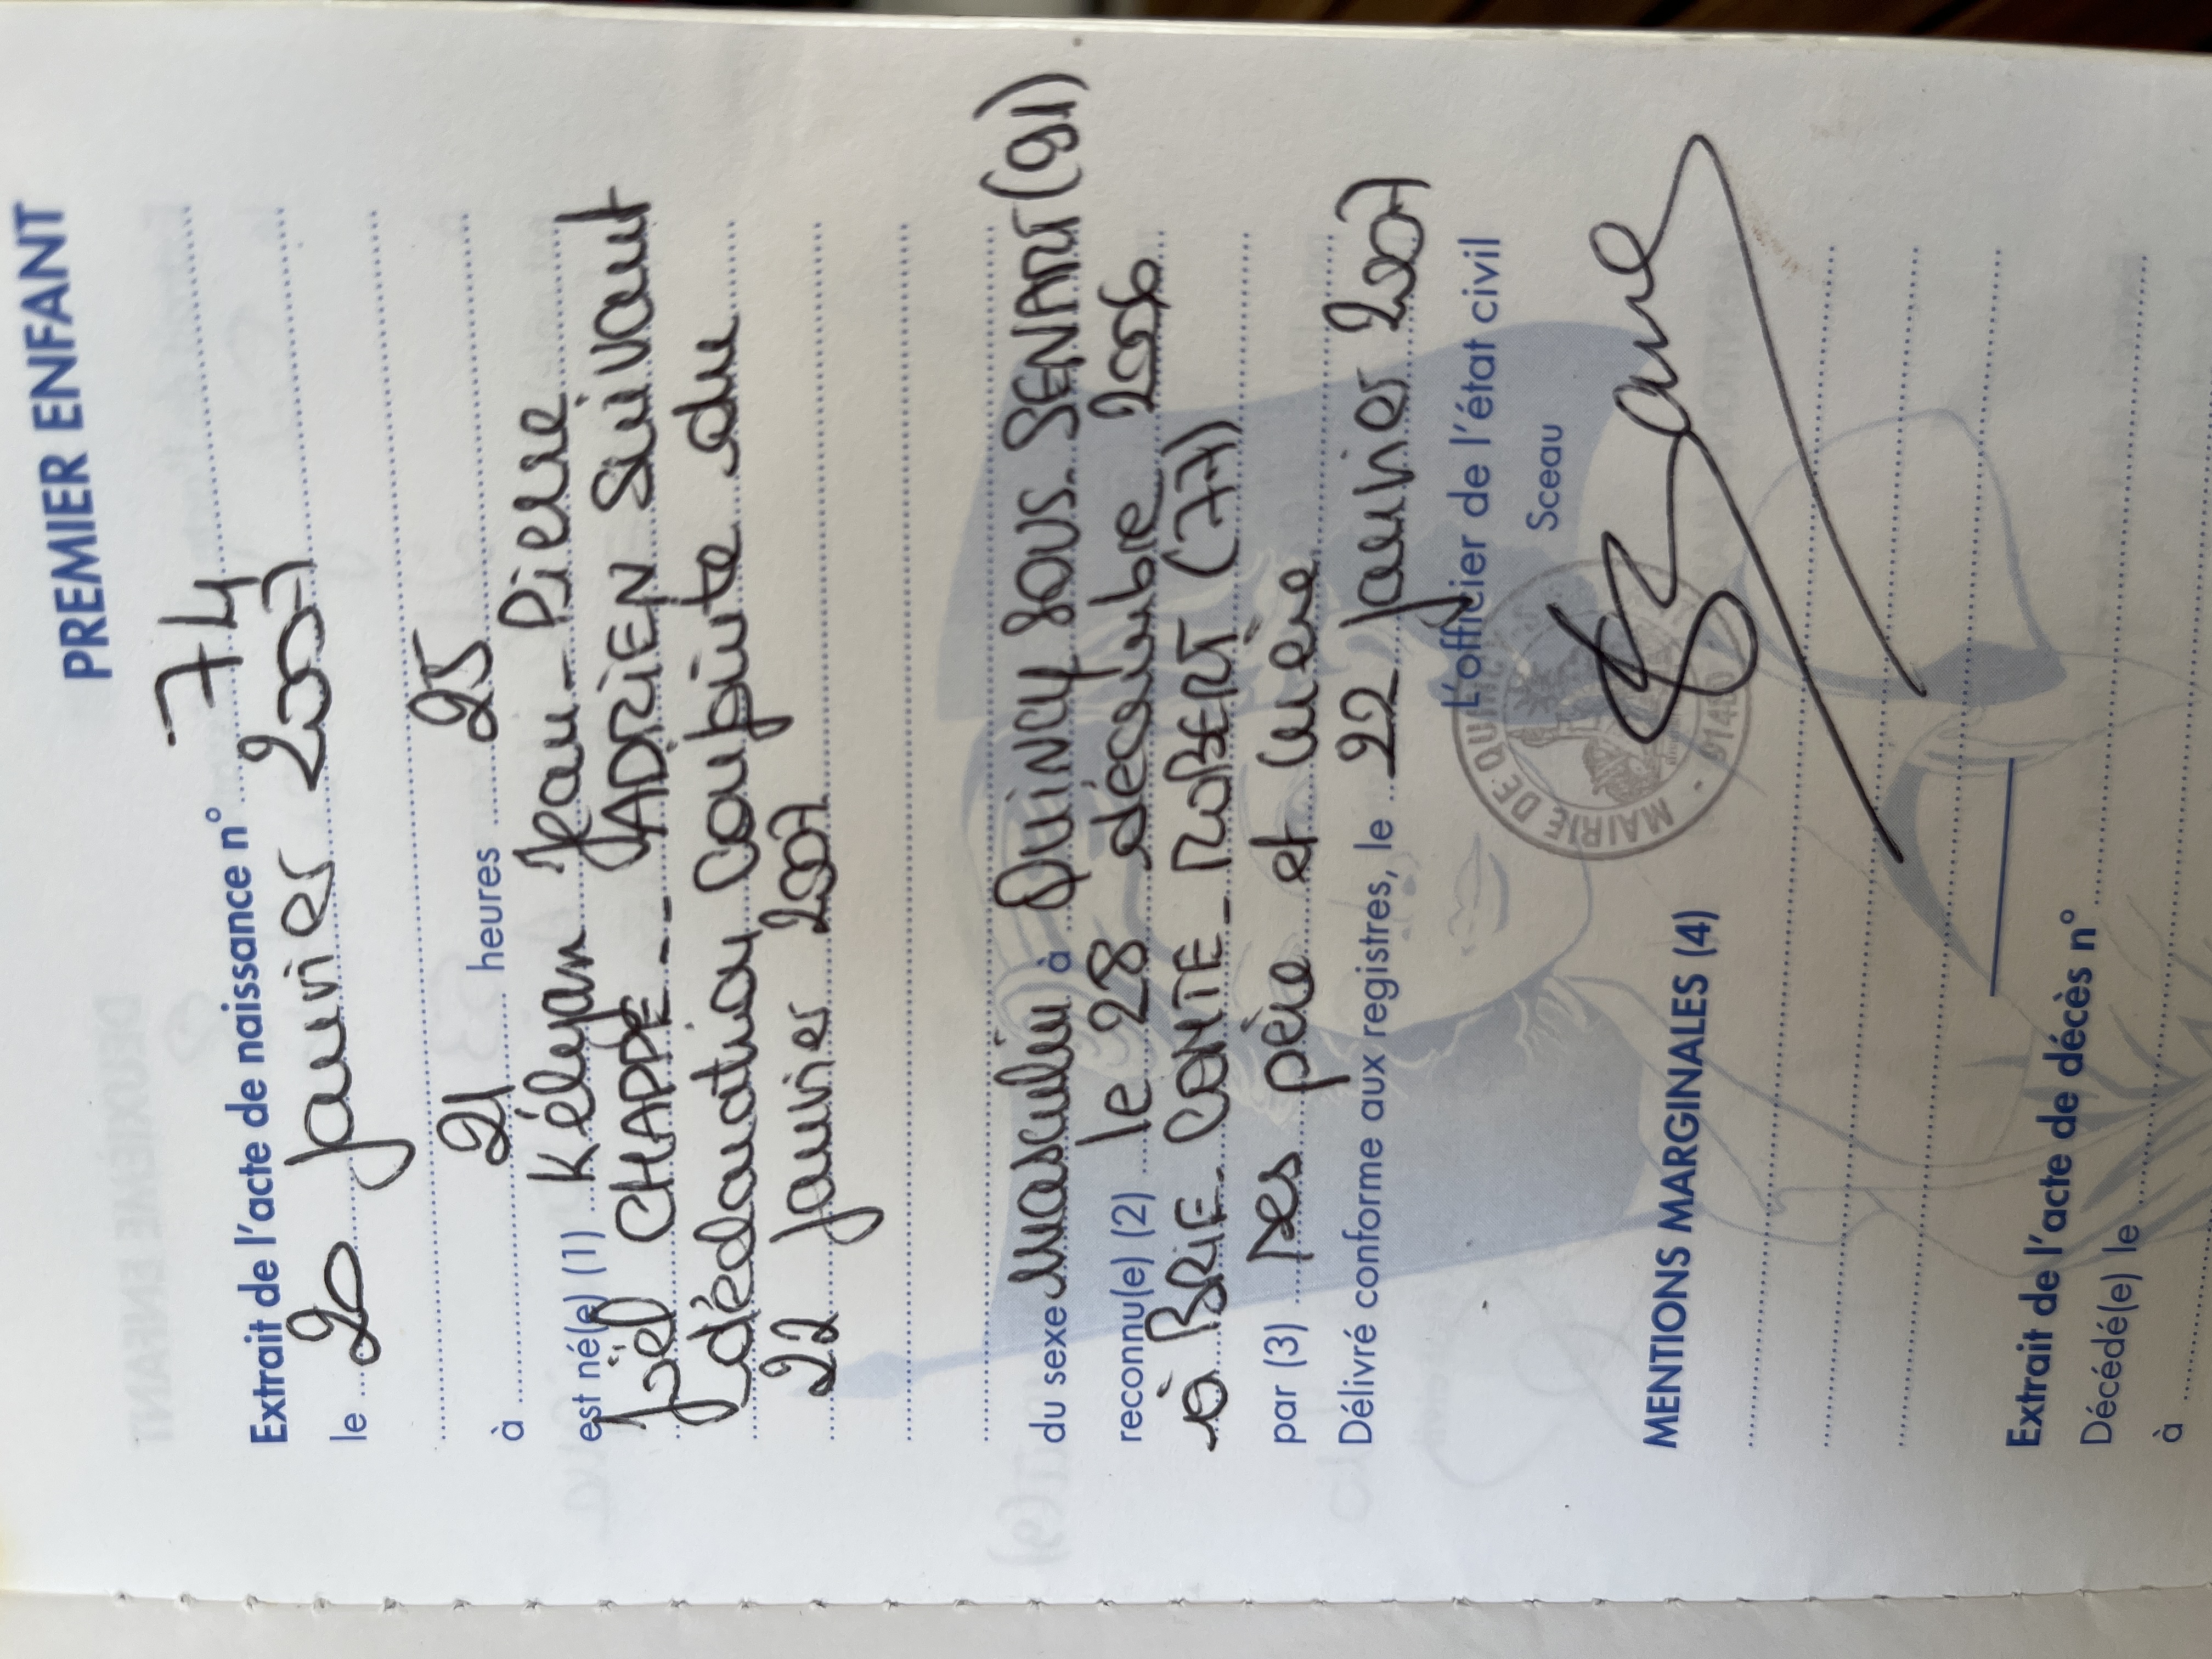 PREMIER ENFANT
Extrait de l'acte de naissance n° 74
le 20 janvier 2007
à 21 heures 25
est né(e) (1) Kélyan Jean-Pierre
Joël CHAPPE -- JADRIEN Suivant
déclaration conjointe du
22 janvier 2007
du sexe masculin à QUINCY SOUS SENART (91)
reconnu(e) (2) le 28 décembre 2006
à BRIE-COMTE-ROBERT (77)
par (3) ses père et mère
Délivré conforme aux registres, le 22 janvier 2007
L'officier de l'état civil
Sceau
MAIRIE DE QUINCY
MENTIONS MARGINALES (4)
Extrait de l'acte de décès n°
Décédé(e) le
à